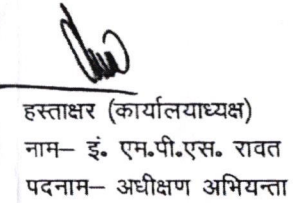 हस्ताक्षर (कार्यालयाध्यक्ष)
नाम– इं. एम.पी.एस. रावत
पदनाम– अधीक्षण अभियन्ता